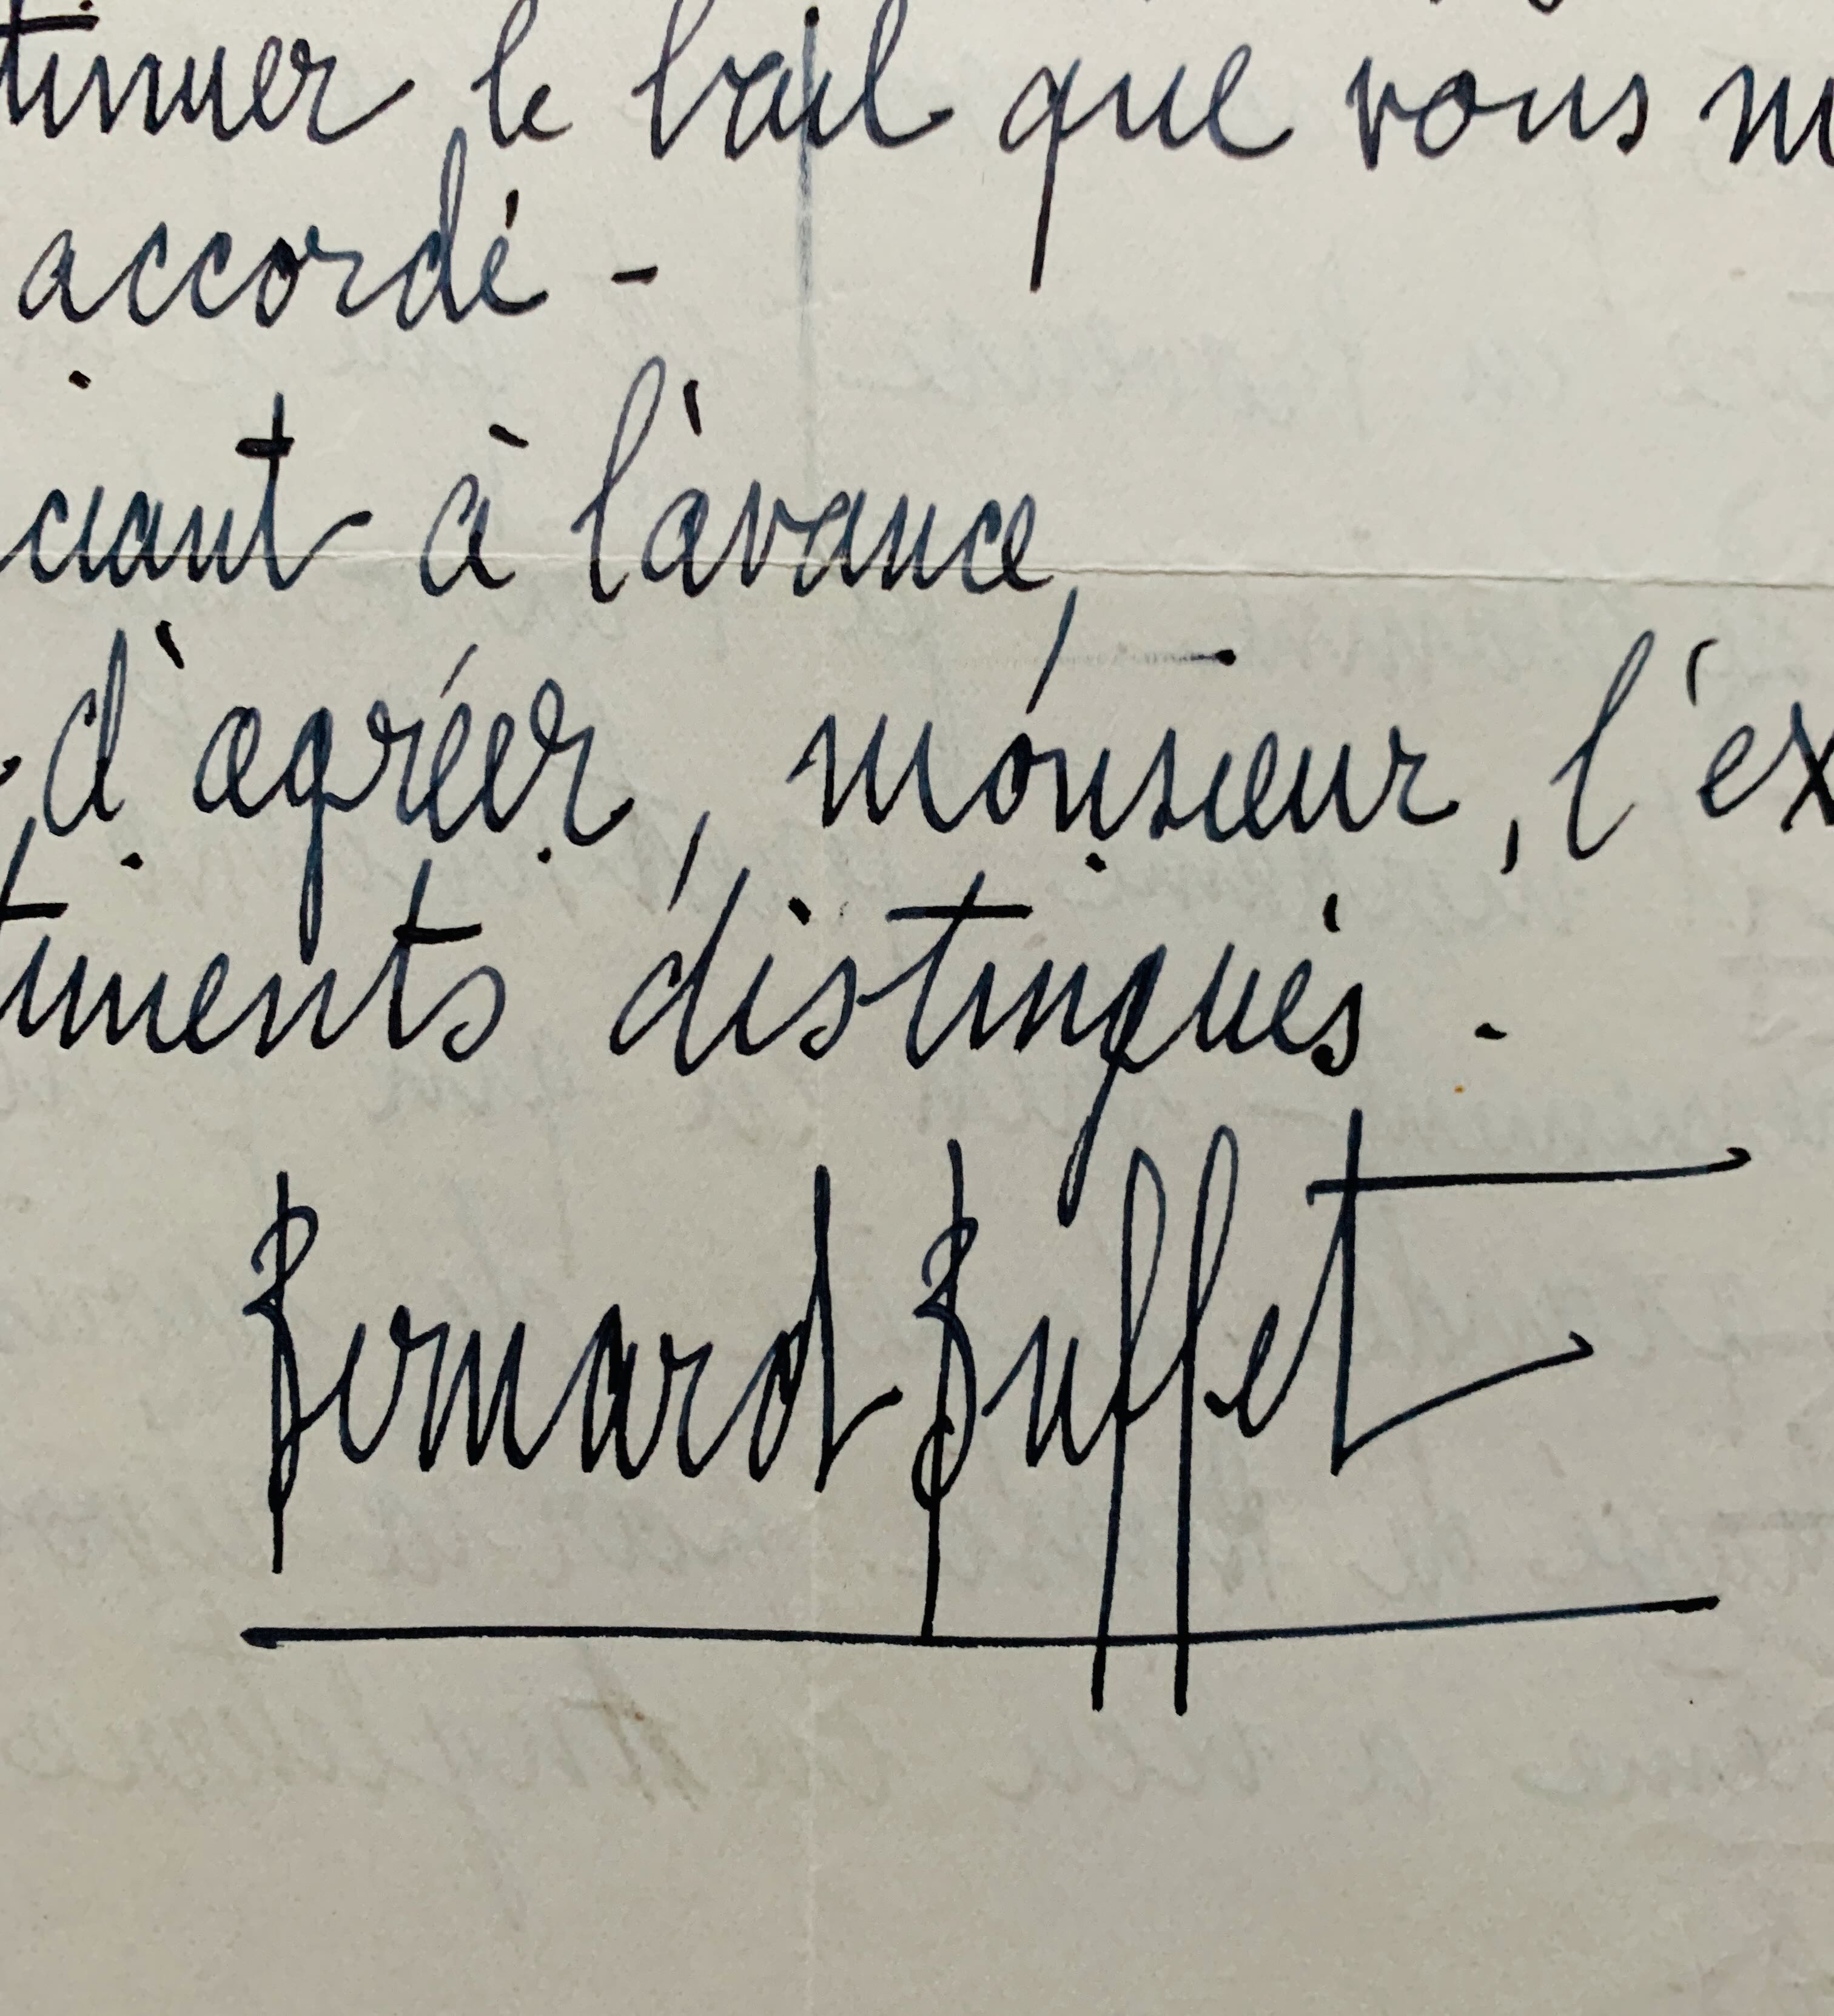 tinuer le bail que vous m
accordé -
ciant à l'avance,
d'agréer, monsieur, l'ex
timents distingués -
Bernard Buffet